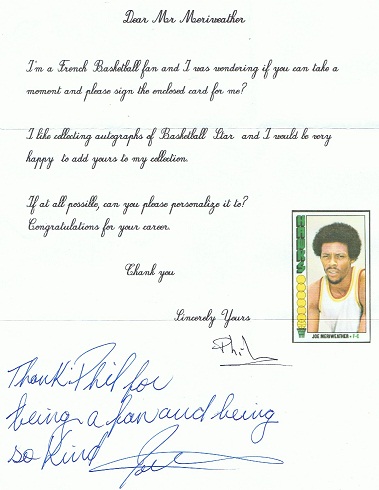 Dear Mr Meriweather
I'm a French Basketball fan and I was wondering if you can take a
moment and please sign the enclosed card for me?
I like collecting autographs of Basketball Star and I would be very
happy to add yours to my collection.
If at all possible, can you please personalize it to?
Congratulations for your career.
Thank you
Sincerely Yours
Phil
JOE MERIWEATHER • F-C
Thank: Phil for
being a fan and being
so kind
Joe